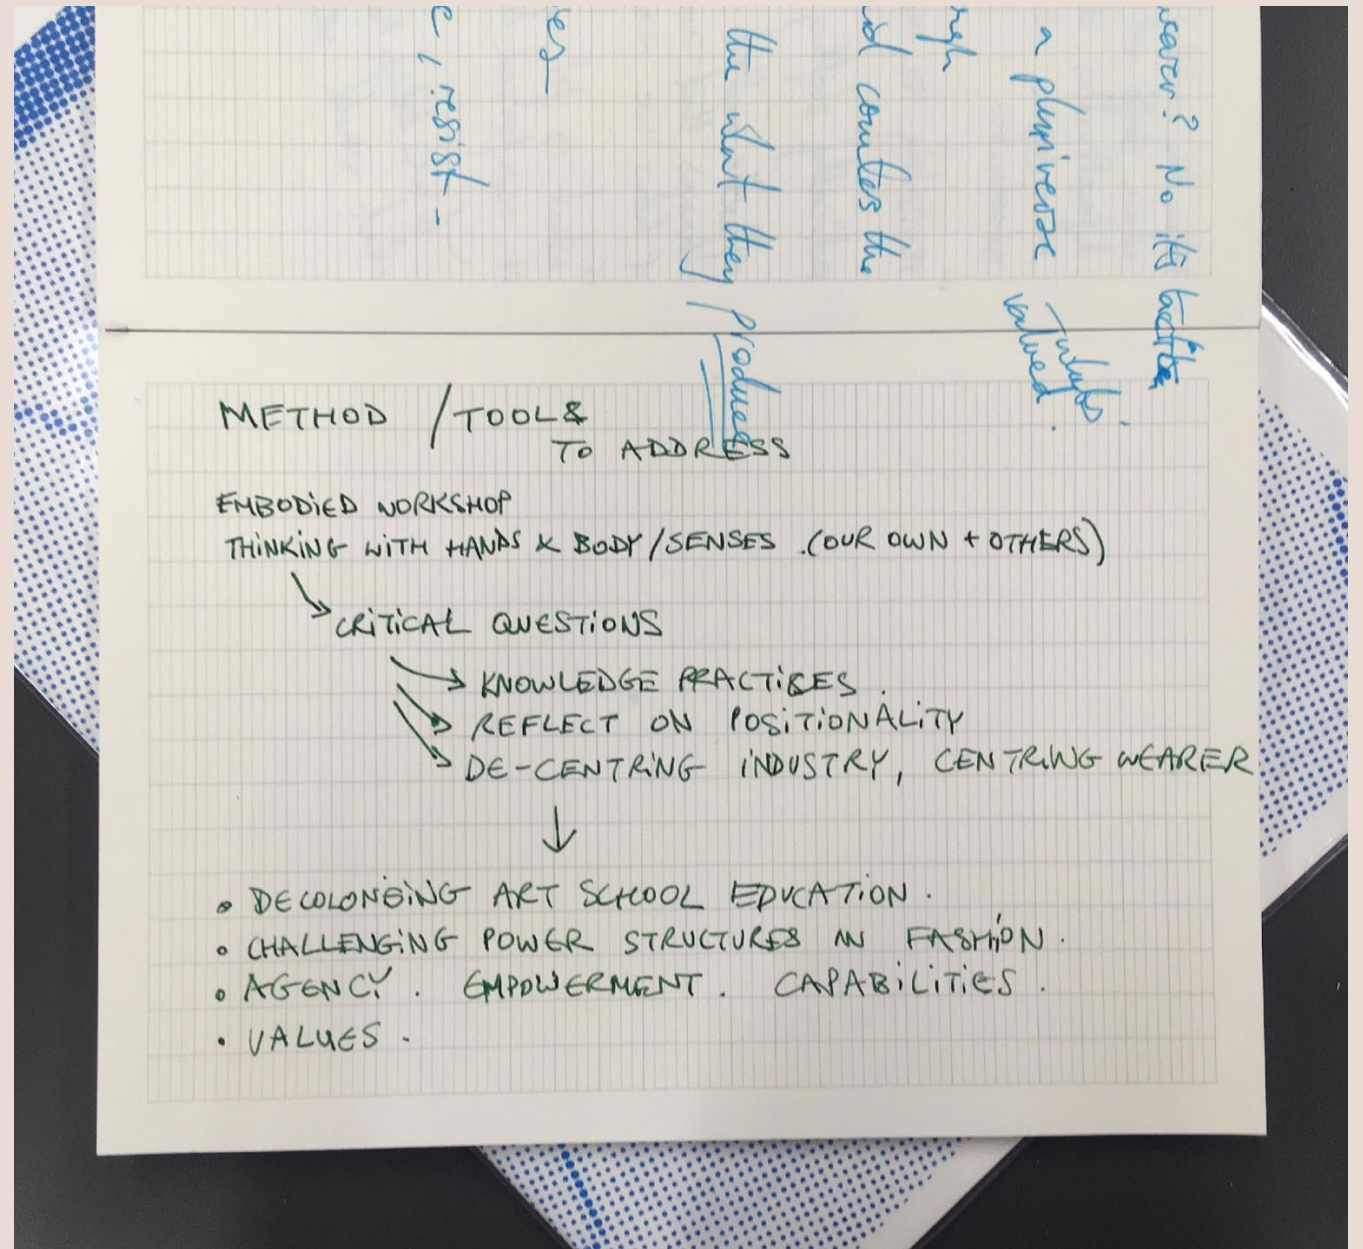 wearer? No it's tactile
a pluriverse
valued.
id counters the
the what they produces
e, resist -
METHOD / TOOLS
TO ADDRESS
EMBODIED WORKSHOP
THINKING WITH HANDS & BODY/SENSES. (OUR OWN + OTHERS)
CRITICAL QUESTIONS
KNOWLEDGE PRACTICES.
REFLECT ON POSITIONALITY
DE-CENTRING INDUSTRY, CENTRING WEARER
• DECOLONISING ART SCHOOL EDUCATION.
• CHALLENGING POWER STRUCTURES IN FASHION.
• AGENCY. EMPOWERMENT. CAPABILITIES.
• VALUES.